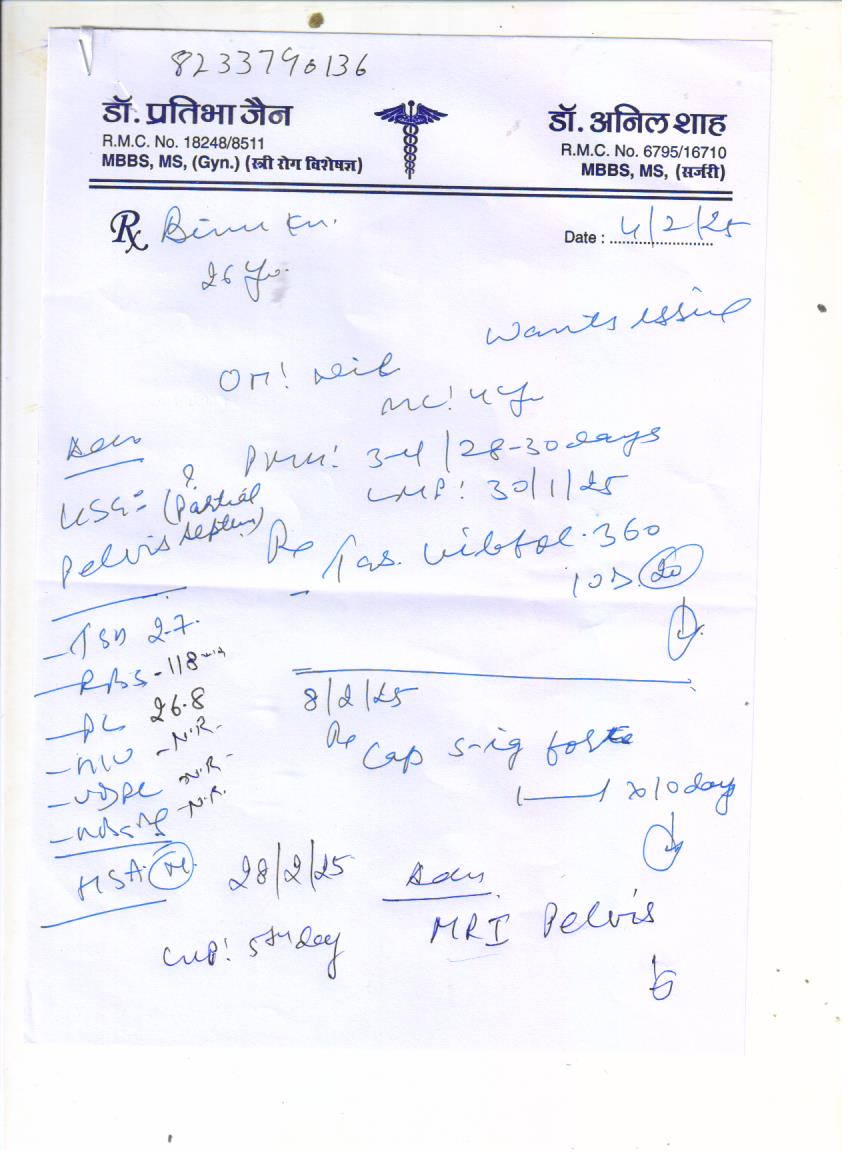 8233790136
डॉ. प्रतिभा जैन
R.M.C. No. 18248/8511
MBBS, MS, (Gyn.) (स्त्री रोग विशेषज्ञ)
डॉ. अनिल शाह
R.M.C. No. 6795/16710
MBBS, MS, (सर्जरी)
Rx
Date : 4/2/25
26 Yr.
Wants issue
OH:
Adv
3-4/28-30 days
LMP: 30/1/25
USG:
Pelvis
? (Partial
septum)
Rx Tab.
1 OD. 20
- TSH 2.7.
- RBS - 118
- PL 26.8
- HIV - N.R.
- VDRL - N.R.
- HBsAg - N.R.
HSA.
8/2/25
Rx Cap s-ig forte
1 1 x 10 day
28/2/25
LMP: 5th day
Adv
MRI Pelvis